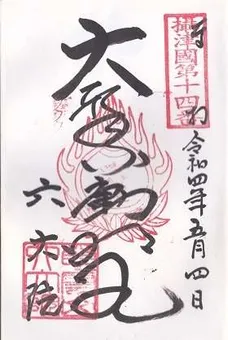 奉拝
攝津國第十四番
令和四年五月四日
大聖不動明王
六大院